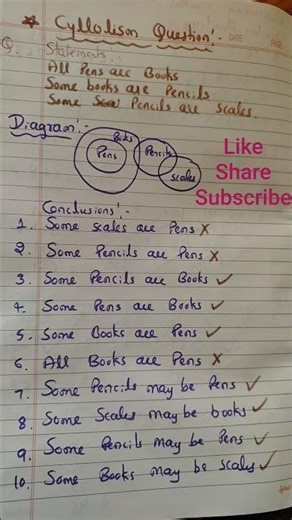 * Cyllolism Question:-
DATE PAGE
Q. Statements:-
All Pens are Books
Some books are Pencils
Some Pencils are Scales.
Diagram:-
Books
Pens
Pencils
Scales
Like
Share
Subscribe
Conclusions:-
1. Some Scales are Pens ✗
2. Some Pencils are Pens ✗
3. Some Pencils are Books ✓
4. Some Pens are Books ✓
5. Some Books are Pens ✓
6. All Books are Pens ✗
7. Some Pencils may be Pens ✓
8. Some Scales may be books ✓
9. Some Pencils may be Pens ✓
10. Some Books may be Scales ✓